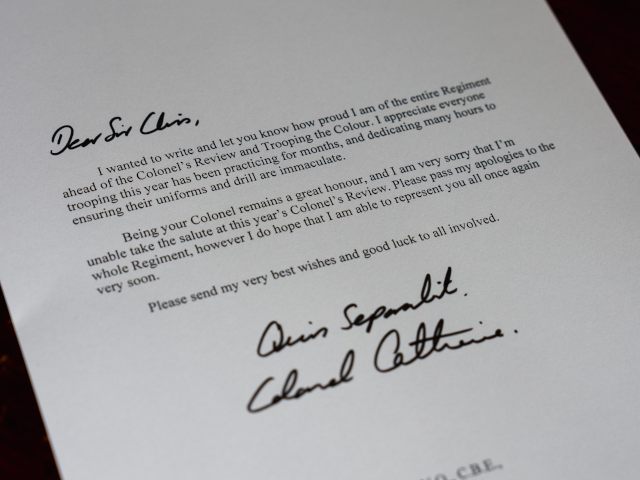 Dear Sir Chris,
I wanted to write and let you know how proud I am of the entire Regiment
ahead of the Colonel's Review and Trooping the Colour. I appreciate everyone
trooping this year has been practicing for months, and dedicating many hours to
ensuring their uniforms and drill are immaculate.
Being your Colonel remains a great honour, and I am very sorry that I'm
unable take the salute at this year's Colonel's Review. Please pass my apologies to the
whole Regiment, however I do hope that I am able to represent you all once again
very soon.
Please send my very best wishes and good luck to all involved.
Quis Separabit.
Colonel Catherine.
C.B.E.,